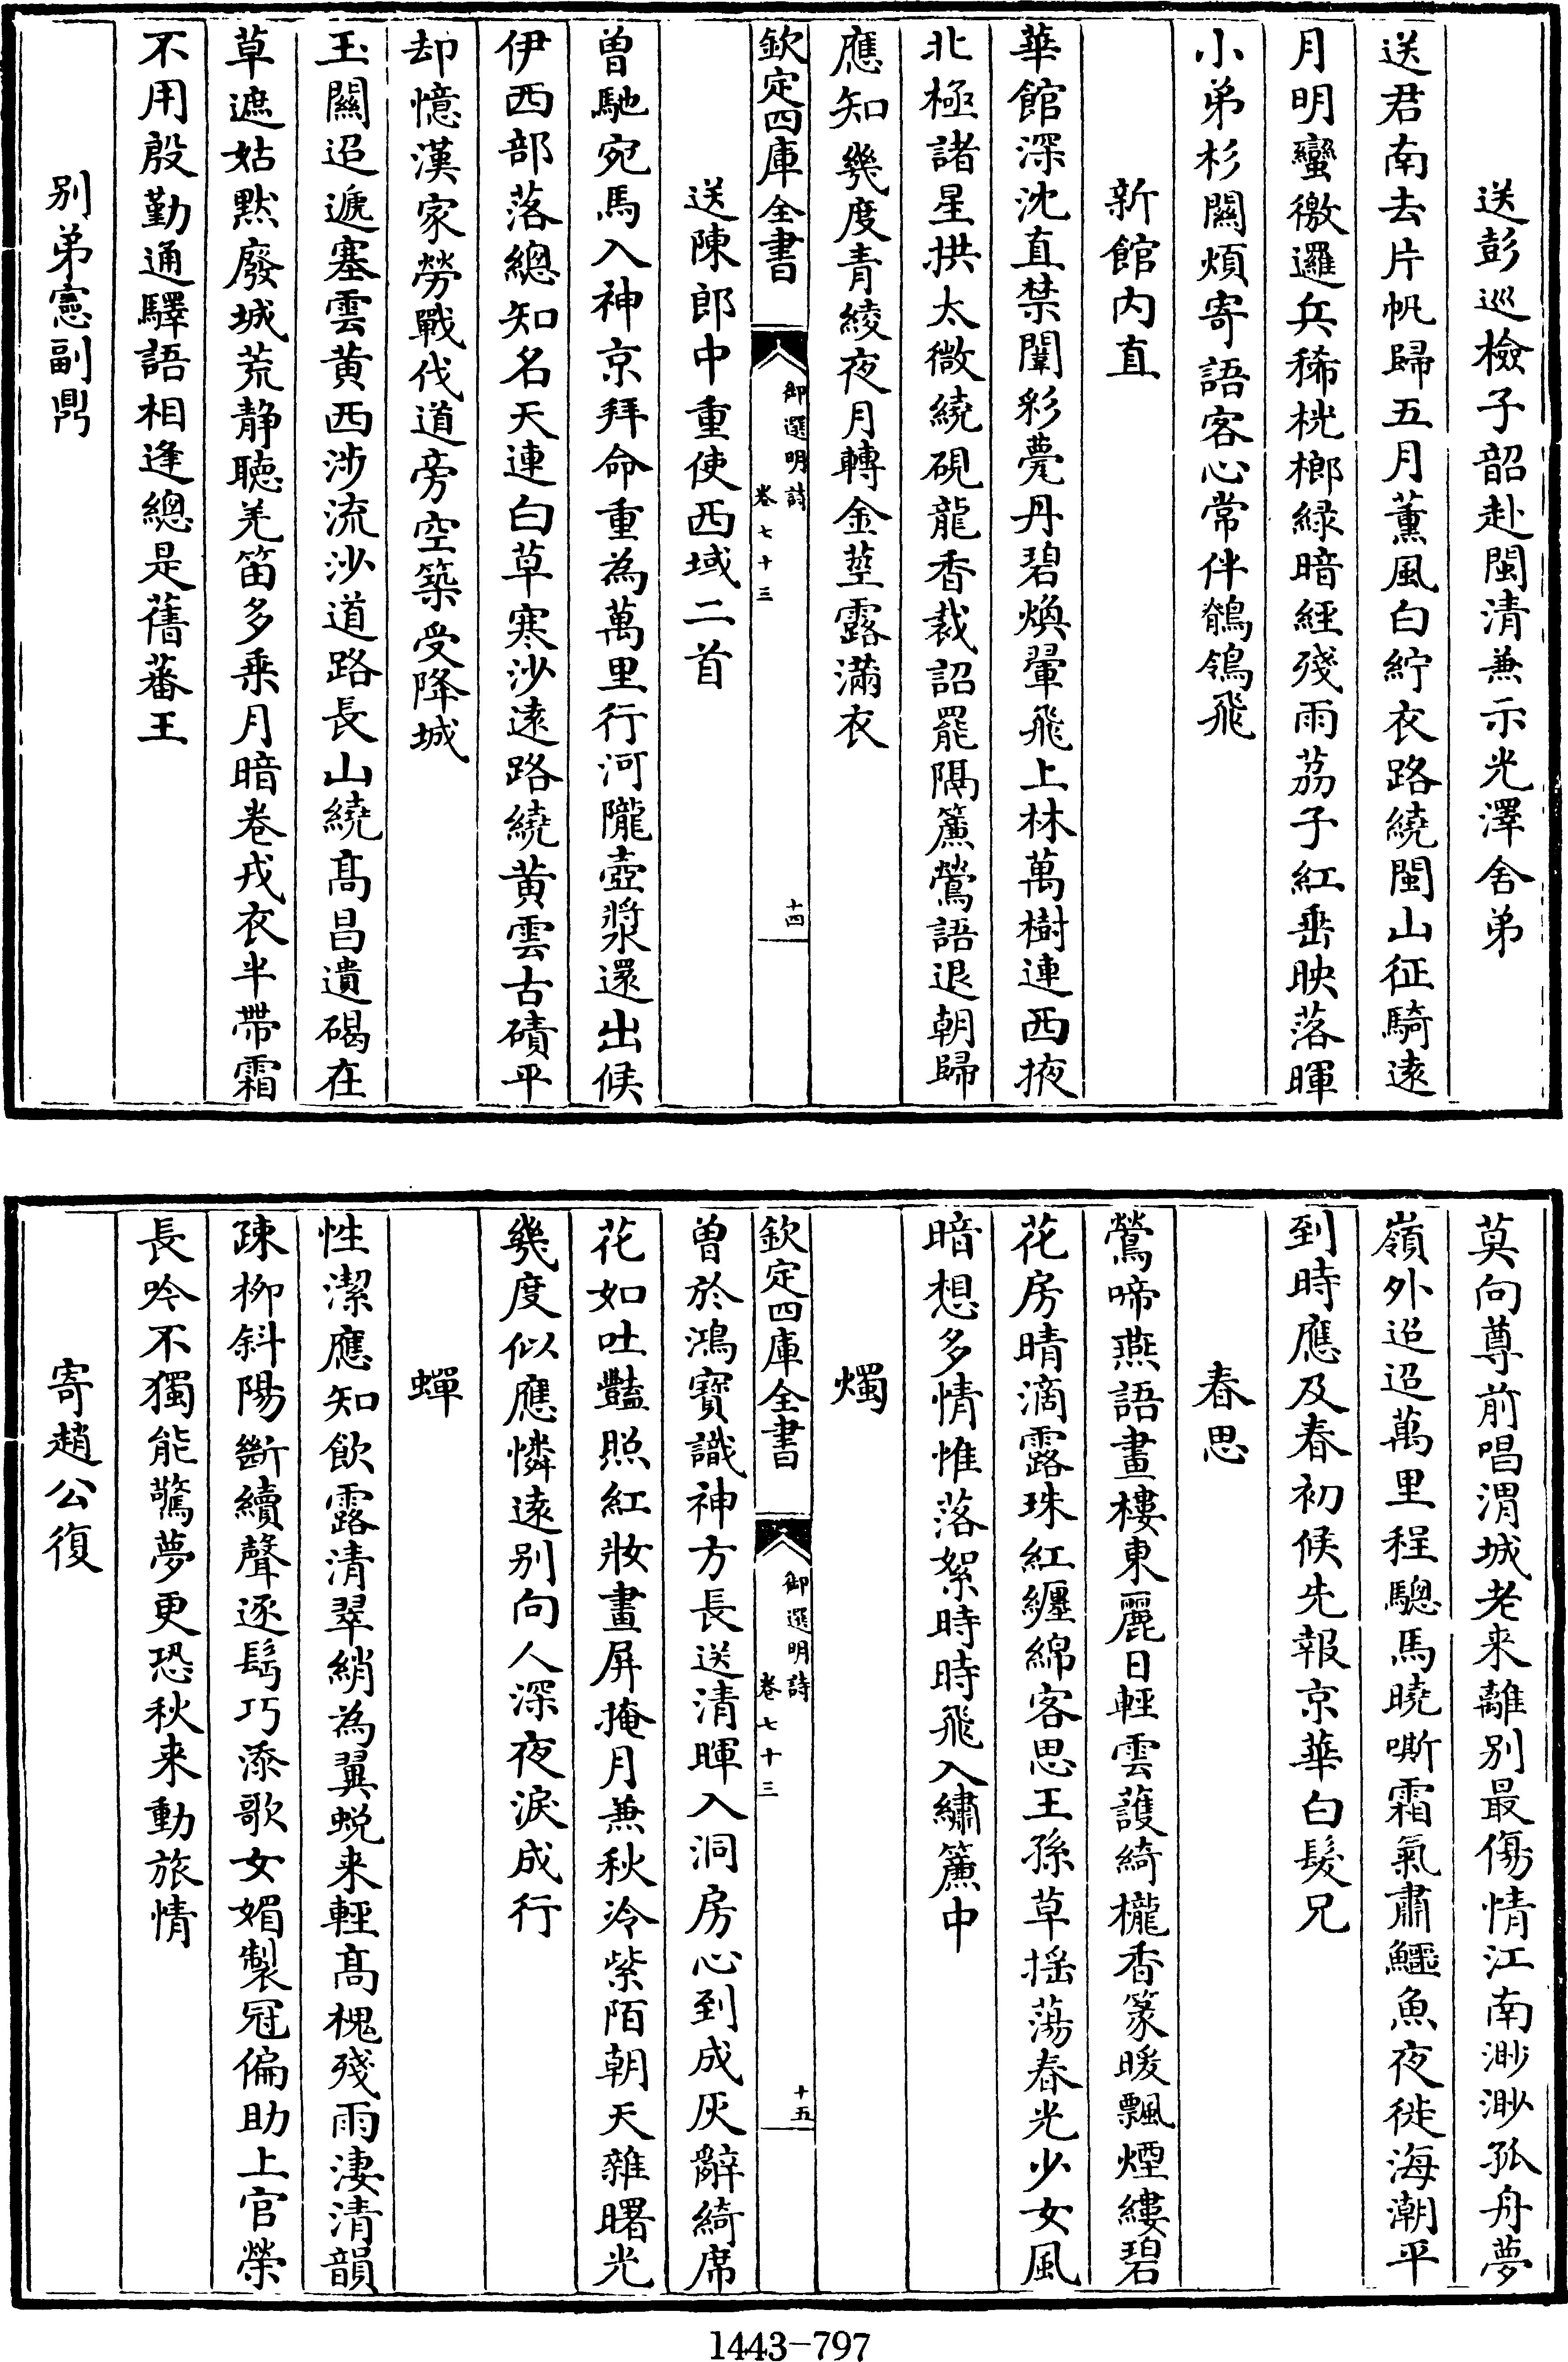 送彭巡檢子韶赴閩清兼示光澤舍弟
送君南去片帆歸五月薰風白紵衣路繞閩山征騎遠
月明蠻徼邏兵稀桄榔緑暗經殘雨荔子紅垂映落暉
小弟杉關煩寄語客心常伴鶺鴒飛
新館内直
華館深沈直禁闈彩甍丹碧煥翬飛上林萬樹連西掖
北極諸星拱太微繞硯龍香裁詔罷隔簾鶯語退朝歸
應知幾度青綾夜月轉金莖露滿衣
欽定四庫全書
御選明詩
卷七十三
十四
送陳郎中重使西域二首
曽馳宛馬入神京拜命重為萬里行河隴壺漿還出候
伊西部落總知名天連白草寒沙遠路繞黄雲古磧平
却憶漢家勞戰伐道旁空築受降城
玉關迢遞塞雲黄西涉流沙道路長山繞髙昌遺碣在
草遮姑黙廢城荒静聽羌笛多乘月暗卷戎衣半帶霜
不用殷勤通驛語相逢總是舊蕃王
别弟憲副鼎
莫向尊前唱渭城老来離别最傷情江南渺渺孤舟夢
嶺外迢迢萬里程驄馬曉嘶霜氣肅鱷魚夜徙海潮平
到時應及春初候先報京華白髮兄
春思
鶯啼燕語畫樓東麗日輕雲護綺櫳香篆暖飄煙縷碧
花房晴滴露珠紅纏綿客思王孫草摇蕩春光少女風
暗想多情惟落絮時時飛入繡簾中
燭
曽於鴻寶識神方長送清暉入洞房心到成灰辭綺席
花如吐豔照紅妝畫屏掩月兼秋冷紫陌朝天雜曙光
幾度似應憐遠别向人深夜淚成行
欽定四庫全書
御選明詩
卷七十三
十五
蟬
性潔應知飲露清翠綃為翼蜕来輕髙槐殘雨淒清韻
疎柳斜陽斷續聲逐髩巧添歌女媚製冠偏助上官榮
長吟不獨能驚夢更恐秋来動旅情
寄趙公復
1443-797